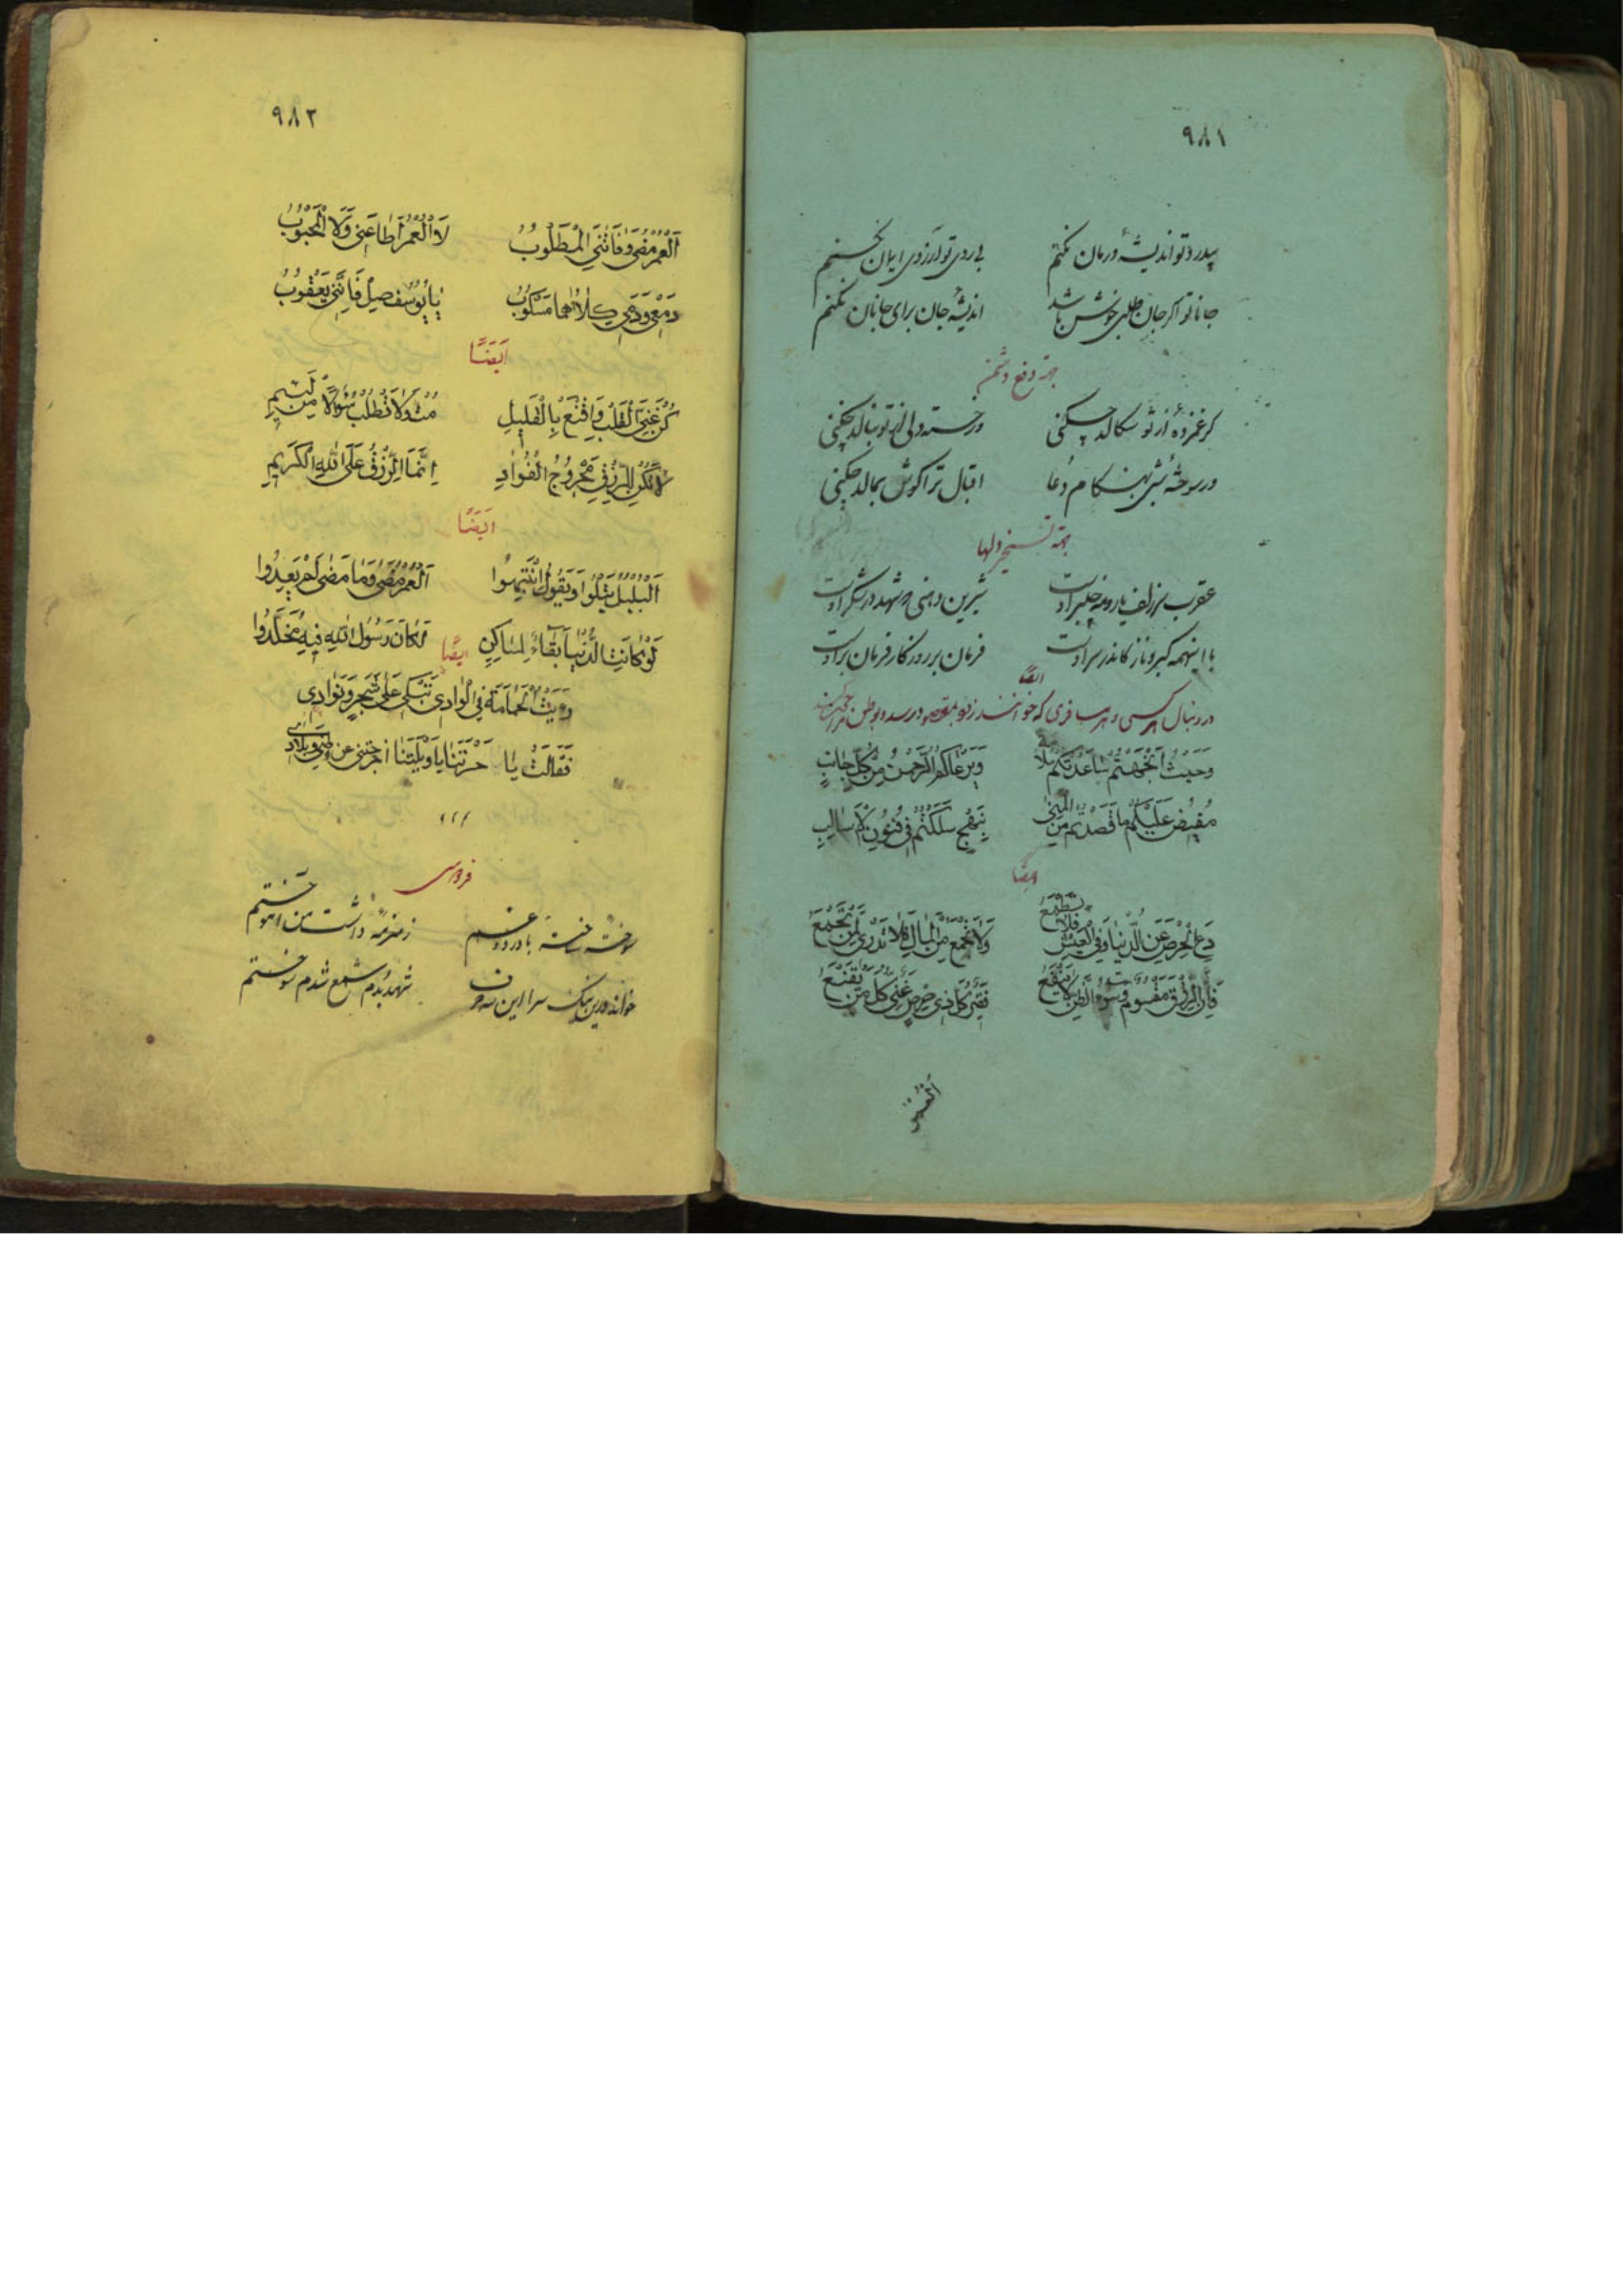 ٩٨١
بیدرد تو اندیشهٔ درمان نکنم بی روی تو آرزوی ایمان نکنم
جانا تو اگر جان طلبی خوش باشد اندیشهٔ جان برای جانان نکنم
جهة دفع دشمن
گر غمزدهٔ از تو سکالد چکنی ور خسته دلی از تو بنالد چکنی
ور سوختهٔ شبی بهنکام دعا اقبال ترا گوش بمالد چکنی
جهة تسخیر دلها
عقرب سر زلف یار و مه چلبر اوست شیرین دهنی و شهد در شکر اوست
با اینهمه کبر و ناز کاندر سر اوست فرمان بر روزکار فرمان بر اوست
ایضاً
در دنبال هر کسی و هر مسافری که خوانند زود بمقصود رسد و بوطن
وَحَیثُ اتَّجَهْتُم سَاعَدَتْکُم سَلامَة وَیَرْعَاکُم الرَّحمٰنُ مِنْ کُلِّ جَانِبٍ
مُفیضٌ عَلَیْکُم مَا قَصَدْتُم مِنَ المُنیٰ بِنَهْجٍ سَلَکْتُم فِی فُنُونِ
ایضاً
دَعِ الْحِرْصَ عَنِ الدُّنْیَا وَفِی الْعَیْشِ فَلَا تَطْمَعْ وَلَا تَجْمَعْ مِنَ الْمَالِ فَلَا تَدْرِی لِمَنْ تَجْمَعْ
فَاِنَّ الرِّزْقَ مَقْسُومٌ وَسُوءُ الظَّنِّ لَا یَنْفَعْ فَقِیرٌ کُلُّ ذِی حِرْصٍ غَنِیٌّ کُلُّ مَنْ یَقْنَعْ
اَلْعُمْر
٩٨٢
اَلْعُمْرُ مَضیٰ وَفَاتَنِی الْمَطْلُوبُ لَا الْعُمْرُ اَطَاعَنِی وَلَا الْمَحْبُوبُ
دَمْعِی وَدَمِی کِلَاهُمَا مَسْکُوبُ یَا یُوسُف صِلْ فَاِنَّنِی یَعْقُوبُ
اَیْضًا
کُنْ غَنِیَّ الْقَلْبِ وَاقْنَعْ بِالْقَلِیلِ مُتْ وَلَا تَطْلُبْ سُؤَالًا مِنْ لَئیمٍ
لَا تَکُنْ لِلرِّزْقِ مَجْرُوحَ الْفُؤَادِ اِنَّمَا الرِّزْقُ عَلَی اللّٰهِ الْکَرِیمِ
ایضًا
اَلْبُلْبُلُ یَتْلُوا وَیَقُولُ انْتَبِهُوا اَلْعُمْرُ مَضیٰ وَمَا مَضیٰ لَمْ یَعِدُوا
لَوْ کَانَتِ الدُّنْیَا بَقَاءً لِسَاکِنٍ لَکَانَ رَسُولُ اللّٰهِ فِیهِ مُخَلَّدُوا
ایضًا
رَیْتُ الْحَمَامَةَ فِی الْوَادِی تَبْکِی عَلیٰ شَجَرٍ وَتَوَادِی
فَقَالَتْ یَا حَسْرَتَنَا یَا وَیْلَتَنَا اخرجتنی عن وطنی وبلادی
فردوسی
سوخته ساخته با درد و غم زمزمه داشت من آموختم
خواند درین تنک سرا این سه حرف شهد بدم شمع شدم سوختم